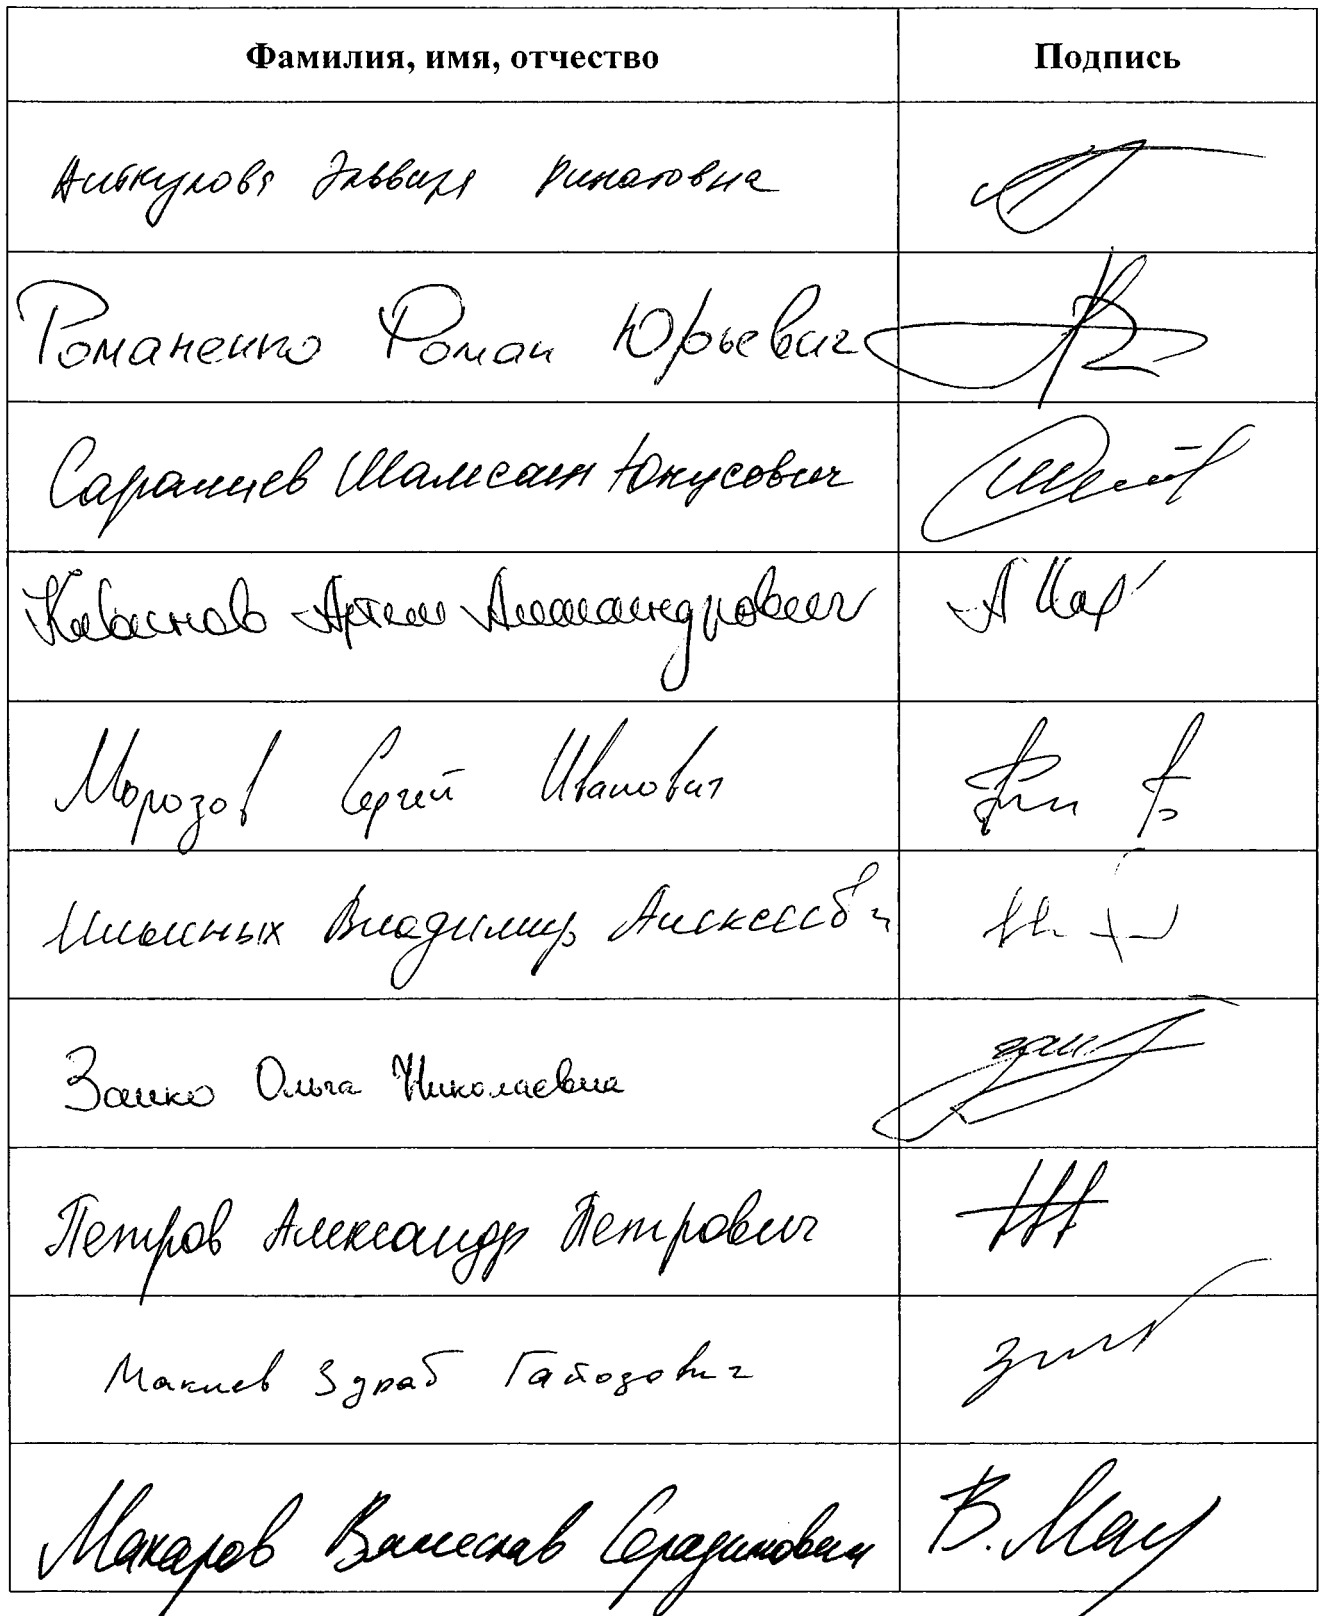 Фамилия, имя, отчество Подпись
Аиткулова Эльвира Ринатовна
Романенко Роман Юрьевич
Саралиев Шамсаил Юнусович
Кавинов Артём Александрович
Морозов Сергей Иванович
Владимир Алексеевич
Заико Ольга Николаевна
Петров Александр Петрович
Макиев Зураб Гайозович
Макаров Вячеслав Серафимович В. Мак